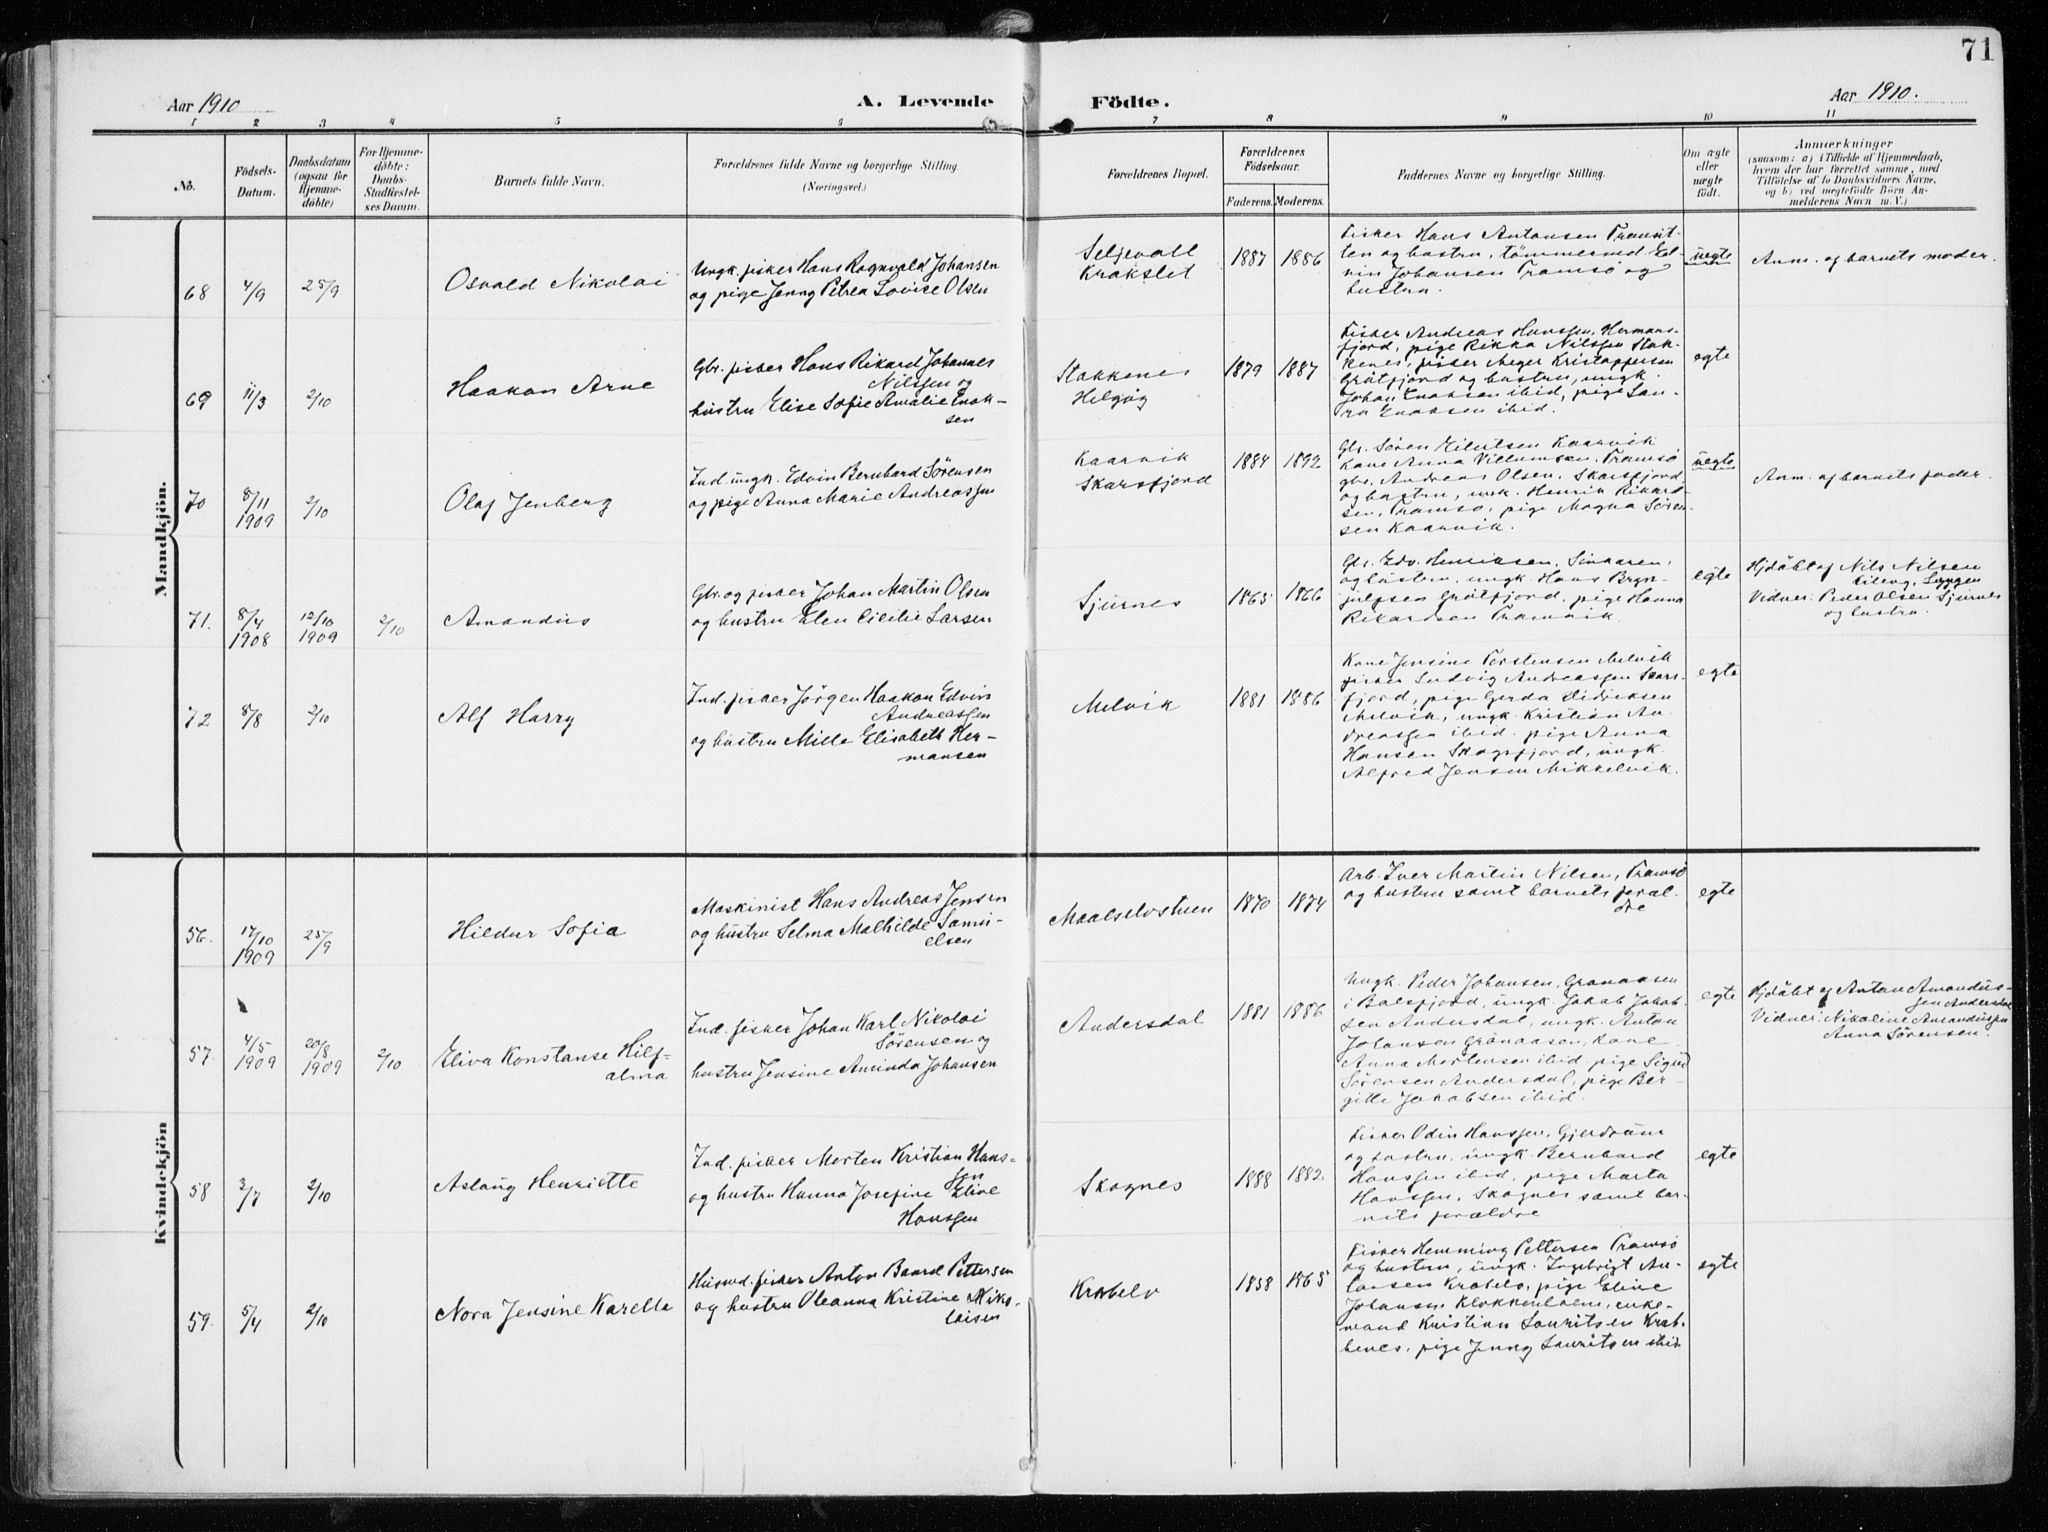 71
Aar 1910
A. Levende
Födte.
Aar 1910.
1 2 3 4 5 6 7 8 9 10 11
No.
Födsels-
Datum.
Daabsdatum
(ogsaa for
Hjemme-
döbte)
For Hjemme-
döbte:
Daabs-
Stadfæstel-
ses Datum.
Barnets fulde Navn.
Forældrenes fulde Navne og borgerlige Stilling.
(Næringsvei.)
Forældrenes Bopæl.
Forældrenes
Födselsaar.
Faderens. Moderens.
Faddernes Navne og borgerlige Stilling.
Om ægte
eller
uægte
födt.
Anmærkninger
(saasom: a) i Tilfælde af Hjemmedaab,
hvem der har forrettet samme, med
Tilföielse af to Daabsvidners Navne.
og b) ved uægtefödte Börn An-
melderens Navn m. V.)
Mandkjön.
68 4/9 25/9
Osvald Nikolai
Ungk. fisker Hans Ragnvald Johansen
og pige Jenny Petrea Lovise Olsen
Seljevoll
Krokslet
1887 1886
Fisker Hans Antonsen Tromst-
ten og hustru, tömmermd Ed-
vin Johansen Tromsö og
hustru.
uegte
Anm. og barnets moder.
69 11/3 2/10
Haakon Arne
Gbr. fisker Hans Rikard Johannes
Nilssen og
hustru Elise Sofie Amalie Enok-
sen
Stakkenes
Helgöy
1879 1887
Fisker Andreas Hanssen, Hermans-
fjord, pige Rikka Nilssen Stak-
kenes, fisker Meyer Kristoffersen
Grötfjord og hustru, ungk.
Johan Enoksen ibid, pige Lau-
ra Enoksen ibid.
egte
70 8/11
1909 2/10
Olaf Jenberg
Ind. ungk. Edvin Bernhard Sörensen
og pige Anna Marie Andreassen
Kaarvik
Skarsfjord
1884 1892
Gbr. Sören Kilertsen Kaarvik
kone Anna Villumsen, Tromsö
gbr. Andreas Olsen, Skarsfjord,
og hustru, ungk. Henrik Rikard-
sen, Tromsö, pige Magna Sören-
sen Kaarvik.
uegte
Anm. af barnets fader.
71. 8/4
1908 12/10
1909 2/10
Amandus
Gbr. og fisker Johan Martin Olsen
og hustru Elen Cicilie Larsen
Sjurnes
1865 1866
Gbr. Edv. Henriksen, Sinkaren,
og hustru, ungk. Hans Bryn-
julfsen Grötfjord, pige Hanna
Rikardsen Tromvik.
egte
Hjdöbt af Nils Nilsen
Lyngen
Vidner: Peder Olsen Sjurnes
og hustru.
72 8/8 2/10
Alf Harry
Ind. fisker Jörgen Haakon Edvin
Andreassen
og hustru Mille Elisabeth Her-
mansen
Melvik
1881 1886
Kone Jensine Torstensen Melvik
fisker Ludvig Andreassen Skars-
fjord, pige Gerda Didriksen
Melvik, ungk. Kristian An-
dreassen ibid. pige Anna
Hansen Skogsfjord, ungk.
Alfred Jensen Mikkelvik.
egte
Kvindekjön
56. 17/10
1909 25/9
Hildur Sofia
Maskinist Hans Andreas Jensen
og hustru Selma Mathilde Samu-
elsen
Maalselvstuen
1870 1874
Arb. Iver Martin Nilsen, Tromsö
og hustru samt barnets foræl-
dre
egte
57. 4/5
1909 20/8
1909 2/10
Eliva Konstanse Hilf-
alma
Ind. fisker Johan Karl Nikolai
Sörensen og
hustru Jensine Aminda Johansen
Andersdal
1881 1886
Ungk. Peder Johansen, Granaasen
i Balsfjord, ungk. Jakob Jakob-
sen Andersdal, ungk. Anton
Johansen Granaasen, kone
Anna Mortensen ibid. pige Sigud
Sörensen Andersdal, pige Ber-
gitte Jakobsen ibid.
egte
Hjdöbt af Anton Amandus-
sen Andersdal
Vidner: Nikoline Amandussen
Anna Sörensen.
58 3/7 2/10
Aslaug Henriette
Ind. fisker Morten Kristian Hans-
sen
og hustru Hanna Josefine Eline
Hanssen
Skognes
1888 1882.
Fisker Odin Hanssen, Gjerdrum
og hustru, ungk. Bernhard
Hanssen ibid, pige Marta
Hanssen, Skognes samt bar-
nets forældre
egte
59. 5/4 2/10
Nora Jensine Karella
Husmd. fisker Anton Baard Pettersen
og hustru Oleanna Kristine Niko-
laisen
Krabelv
1858 1865
Fisker Hemming Pettersen Tromsö
og hustru, ungk. Ingebrigt An-
tonsen Krabelv, pige Eline
Johansen, enke-
mand Kristian Lauritsen Krab-
benes, pige Jenny Lauritsen ibid.
egte